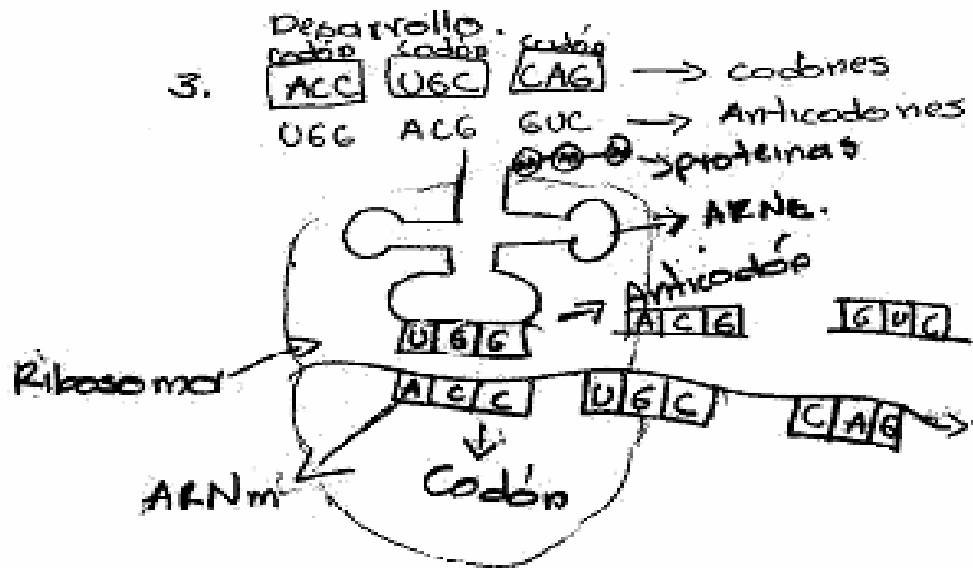 Desarrollo.
codón codón codón
3. ACC UGC CAG → codones
UGG ACG GUC → Anticodones
→ proteinas
→ ARNt.
→ Anticodón
UGG ACG GUC
Ribosoma
ACC UGC CAG
ARNm
Codón